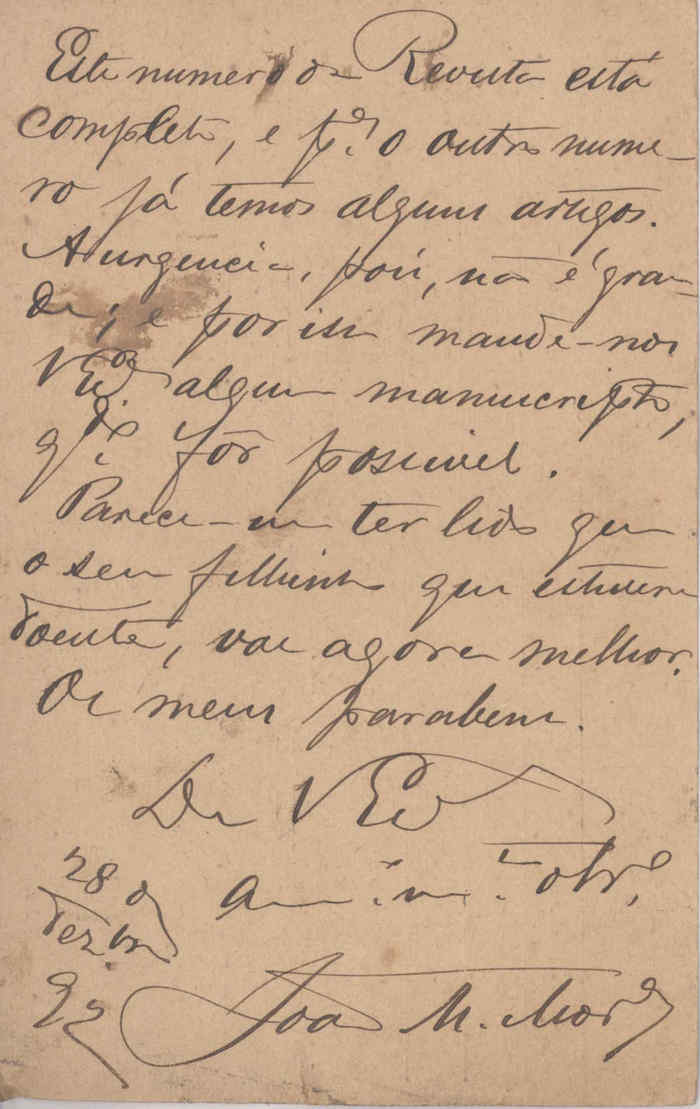 Este numero da Revista está
completo, e p.ª o outro nume-
ro já temos alguns artigos.
A urgencia, pois, não é gran-
de; e por isso mande-nos
V. Ex.ª algum manuscripto,
q.do fôr possivel.
Parece-me ter lido que
o seu filhinho que estivera
doente, vae agora melhor.
Os meus parabens.
De V. Ex.ª
am.º m.to obr.º
28 de
dezbro
92
João M. Mor.ª